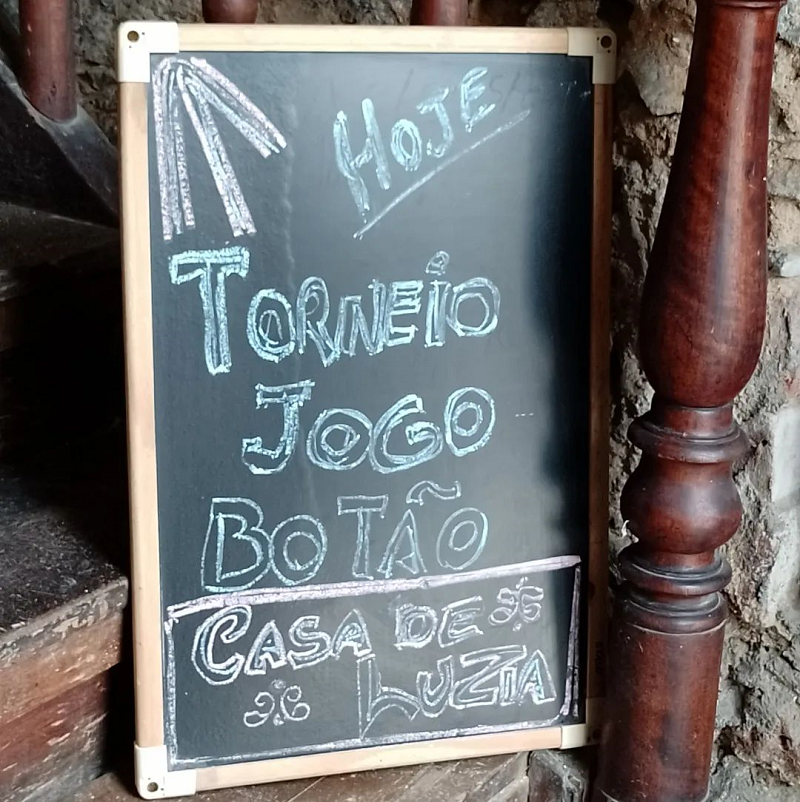 HOJE
TORNEIO
JOGO
BOTÃO
CASA DE
LUZIA